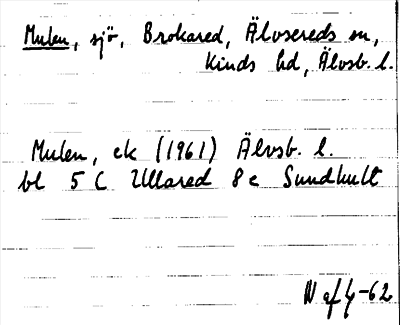 Mulen, sjö, Brokared, Älvsereds sn,
Kinds hd, Älvsb. l.
Mulen, ek (1961) Älvsb. l.
bl 5 C Ullared 8 c Sundhult